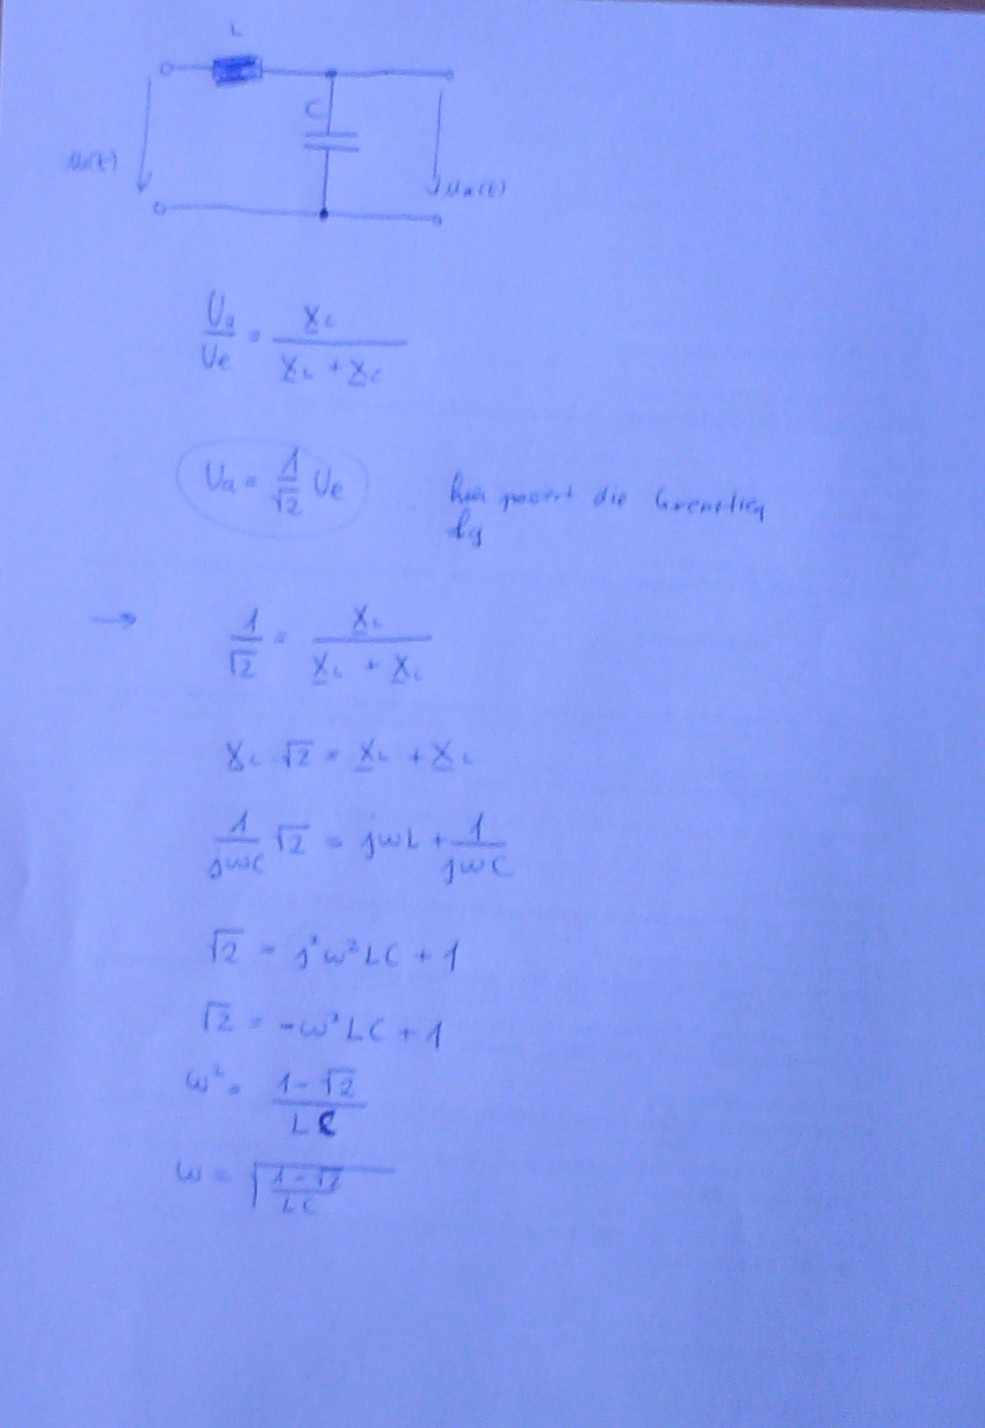 L
C
Ua(t)
U̲a/U̲e = X̲c / (X̲L + X̲c)
Ua = 1/√2 Ue
hier passiert die
fg
→ 1/√2 = X̲c / (X̲L + X̲c)
X̲c · √2 = X̲L + X̲c
1/(jωC) √2 = jωL + 1/(jωC)
√2 = j²ω²LC + 1
√2 = -ω²LC + 1
ω² = (1-√2)/(LC)
ω = √((1-√2)/(LC))